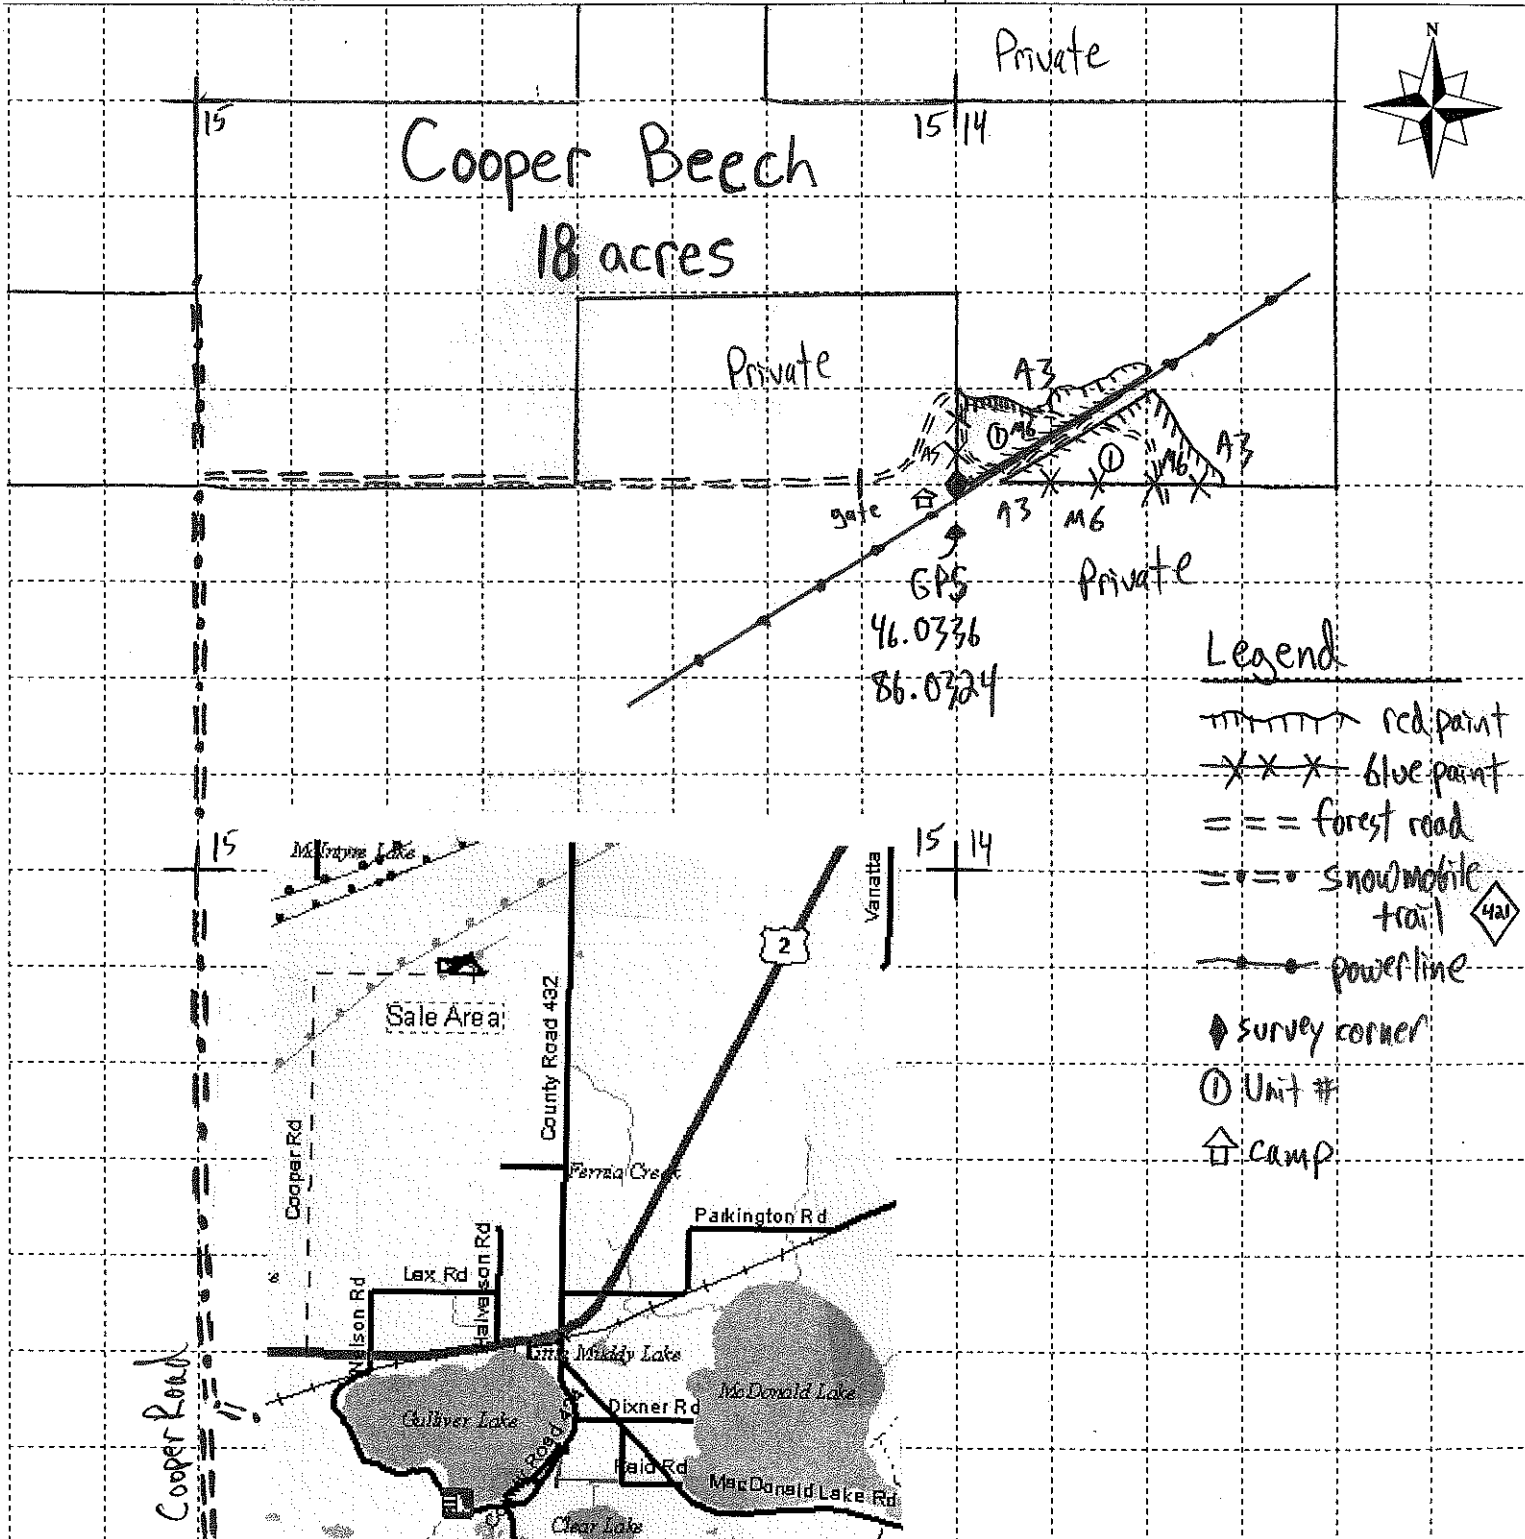 Private
N
15
15 14
Cooper Beech
18 acres
Private
A3
1
M6
A5
1
M6
A3
gate
A3
M6
GPS
46.0336
86.0324
Private
Legend
red paint
blue paint
forest road
snowmobile
trail
421
powerline
survey corner
1 Unit #
camp
15
15 14
McIntyre Lake
Vanatta
2
Sale Area
County Road 432
Cooper Rd
Parkington Rd
Lax Rd
Nelson Rd
Little Muddy Lake
McDonald Lake
Gulliver Lake
Dixner Rd
MacDonald Lake Rd
Clear Lake
Cooper Road